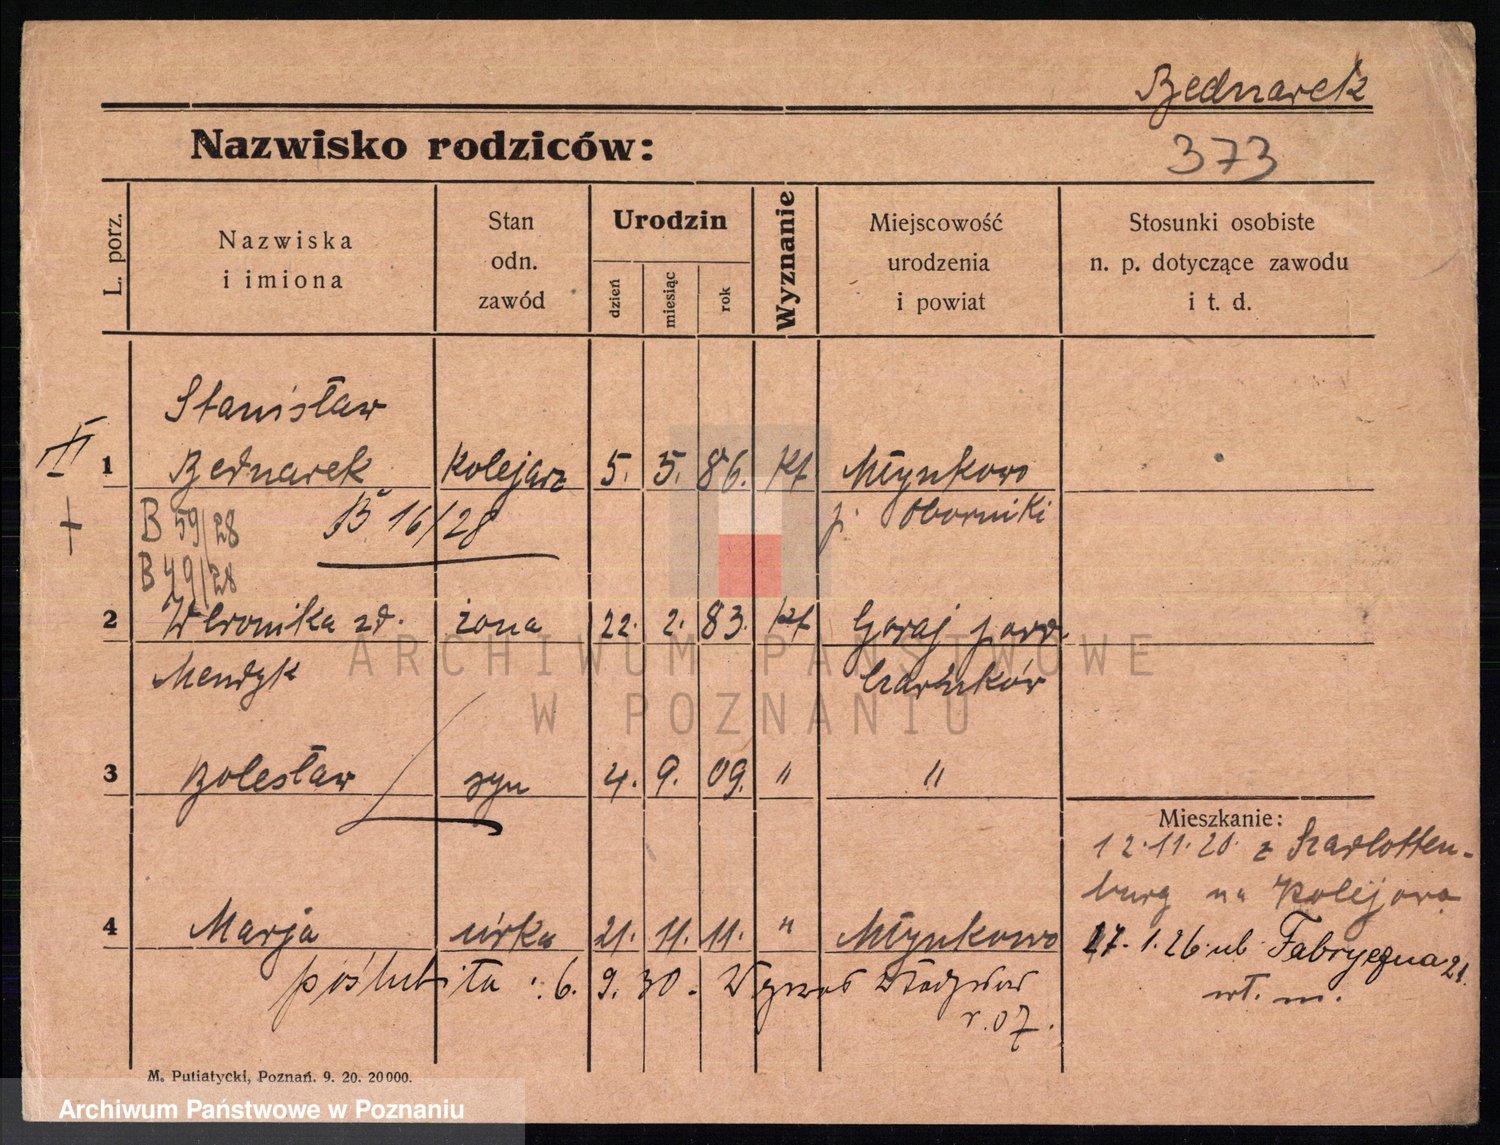 Bednarek
Nazwisko rodziców:
373
L. porz.
Nazwiska
i imiona
Stan
odn.
zawód
Urodzin
dzień
miesiąc
rok
Wyznanie
Miejscowość
urodzenia
i powiat
Stosunki osobiste
n. p. dotyczące zawodu
i t. d.
Stanisław
II 1 Bednarek kolejarz 5. 5. 86. kt Młynkowo
+ B 59/28 B 16/28 p. Oborniki
B 49/28
2 Weronika zd. żona 22. 2. 83. kt Goraj pow.
Mendyk Czarnków
3 Bolesław syn 4. 9. 09. " "
Mieszkanie:
12.11.20. z Szarlotten-
burg na Kolejową
4 Marja córka 21. 11. 11. " Młynkowo
17. 1. 26. ub Fabryczna 21.
poślubiła: 6. 9. 30. Władysław
wł. m.
r. 07.
M. Putiatycki, Poznań. 9. 20. 20000.
ARCHIWUM PAŃSTWOWE
W POZNANIU
Archiwum Państwowe w Poznaniu